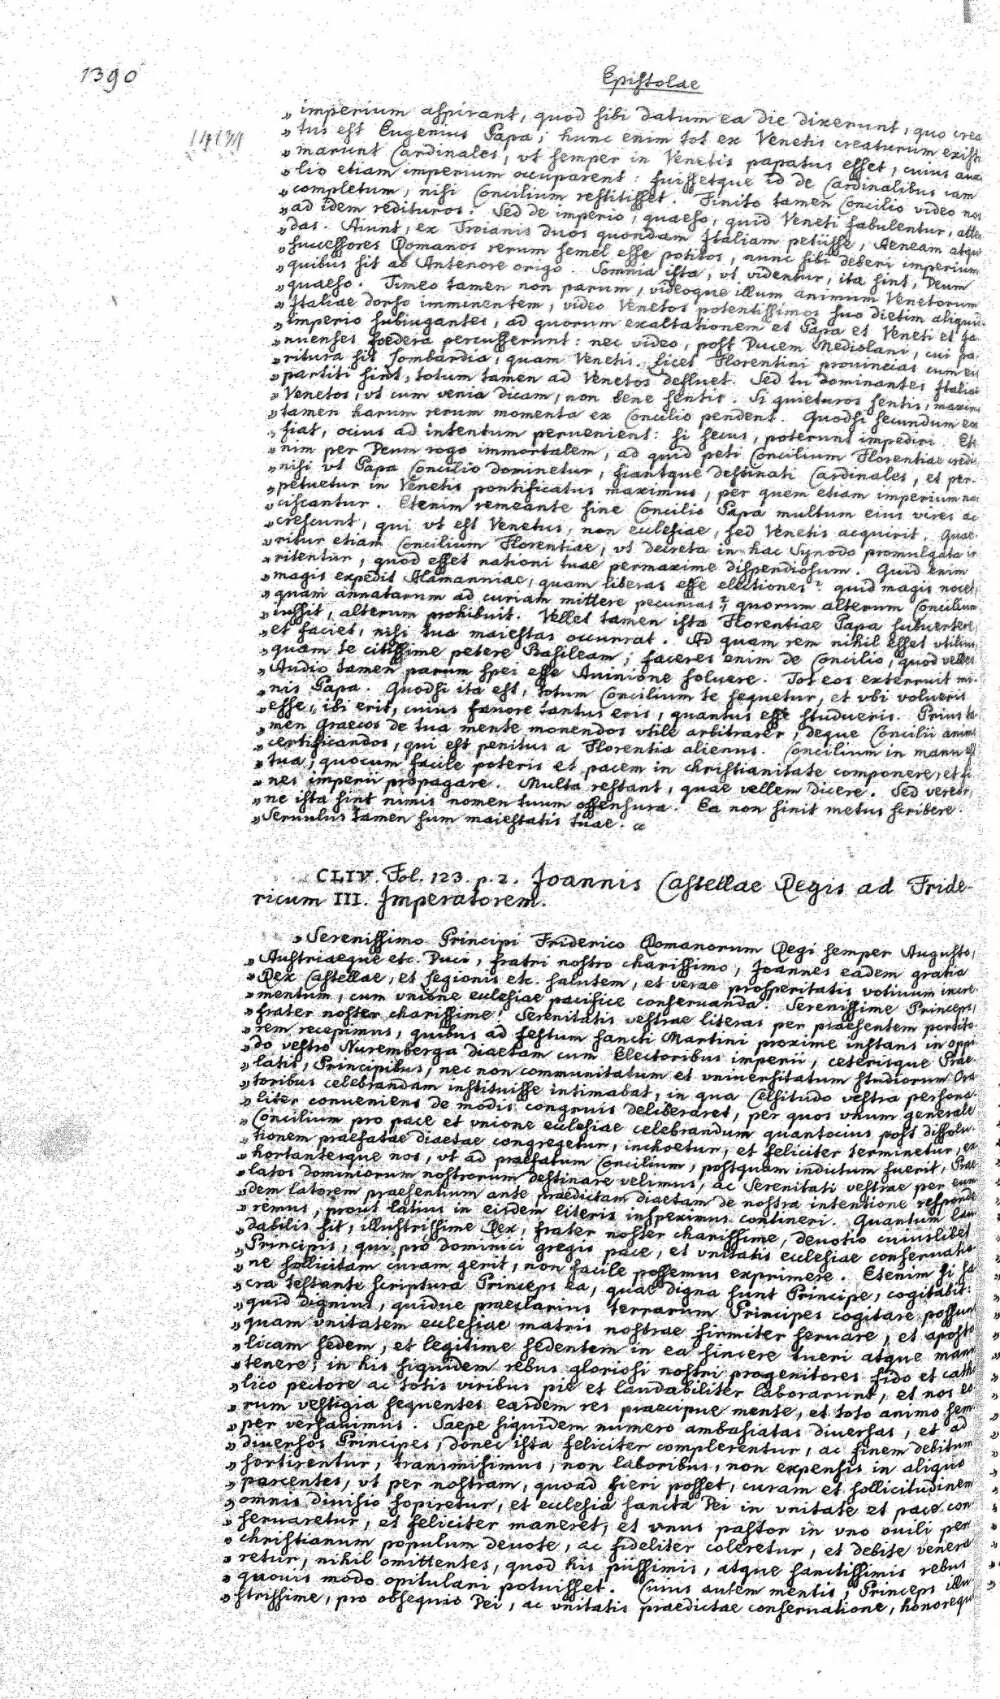 1390
Epistolae
„ imperium aspirant, quod sibi datum ea die dixerunt, quo crea
„ tus est Eugenius Papa; hunc enim tot ex Venetis creaturum existi
„ marunt Cardinales, vt semper in Venetis papatus esset, cuius auxi
„ lio etiam imperium occuparent: fuissetque id de Cardinalibus iam
„ completum, nisi Concilium restitisset. Finito tamen Concilio video nos
„ ad idem redituros. Sed de imperio, quaeso, quid Veneti fabulentur, atten
„ das. Aiunt, ex Troianis duos quondam Italiam petiisse, Aeneam atque
„ successores Romanos rerum semel esse potitos, nunc sibi deberi imperium,
„ quibus sit ab Antenore origo. Somnia ista, vt videntur, ita sint, Deum
„ quaeso. Timeo tamen non parum, videoque illum animum Venetorum
„ Italiae dorso imminentem, video Venetos potentissimos suo dietim aliquid
„ imperio subiugantes, ad quorum exaltationem et Papa et Veneti et Ja
„ nuenses foedera percusserunt: nec video, post Ducem Mediolani, cui pa
„ ritura sit Lombardia, quam Venetis. Licet Florentini prouincias cum eis
„ partiti sint, totum tamen ad Venetos defluet. Sed tu dominantes Italiae
„ Venetos, vt cum venia dicam, non bene sentis. Si quieturos sentis, maxima
„ tamen harum rerum momenta ex Concilio pendent. Quodsi secundum eos
„ fiat, ocius ad intentum peruenient: si secus, poterunt impediri. Et
„ nim per Deum rogo immortalem, ad quid peti Concilium Florentiae credis
„ nisi vt Papa Concilio dominetur, fiantque destinati Cardinales, et per-
„ petuetur in Venetis pontificatus maximus, per quem etiam imperium na
„ ciscantur. Etenim remeante sine Concilio Papa multum eius vires ac
„ crescunt, qui vt est Venetus, non ecclesiae, sed Venetis acquirit. Quae-
„ ritur etiam Concilium Florentiae, vt decreta in hac Synodo promulgata ir
„ ritentur, quod esset nationi tuae permaxime dispendiosum. Quid enim
„ magis expedit Alamanniae, quam liberas esse electiones? quid magis nocet,
„ quam annatarum ad curiam mittere pecunias?, quorum alterum Concilium
„ iussit, alterum prohibuit. Vellet tamen ista Florentiae Papa subuertere
„ et faciet, nisi tua maiestas occurrat. Ad quam rem nihil esset vtilius
„ quam te citissime petere Basileam; faceres enim de Concilio, quod velles
„ Audio tamen parum spei esse Auinione soluere. Tot eos exterruit mi-
„ nis Papa. Quodsi ita est, totum Concilium te sequetur, et vbi volueris
„ esse, ibi erit, cuius fauore tantus eris, quantus esse studueris. Prius ta
„ men Graecos de tua mente monendos vtile arbitrarer, deque Concilii animo
„ certificandos, qui est penitus a Florentia alienus. Concilium in manu est
„ tua, quocum facile poteris et pacem in christianitate componere, et fi
„ nes imperii propagare. Multa restant, quae vellem dicere. Sed vereor,
„ ne ista sint nimis nomen tuum offensura. Ea non sinit metus scribere.
„ Seruulus tamen sum maiestatis tuae.
CLIV. Fol. 123. p. 2. Joannis Castellae Regis ad Fride-
ricum III. Imperatorem.
„ Serenissimo Principi Friderico Romanorum Regi semper Augusto,
„ Austriaeque etc. Duci, fratri nostro charissimo, Joannes eadem gratia
„ Rex Castellae, et Legionis etc. salutem, et verae prosperitatis votiuum incre-
„ mentum, cum vnione ecclesiae pacifice conseruanda. Serenissime Princeps,
„ frater noster charissime! Serenitatis vestrae literas per praesentem portito
„ rem recepimus, quibus ad festum sancti Martini proxime instans in oppi
„ do vestro Nuremberga diaetam cum Electoribus imperii, ceterisque Prae
„ latis, Principibus, nec non communitatum et vniuersitatum studiorum Ora
„ toribus celebrandam instituisse intimabat, in qua Celsitudo vestra persona-
„ liter conueniens de modis congruis deliberaret, per quos vnum generale
„ Concilium pro pace et vnione ecclesiae celebrandum quantocius post dissolu-
„ tionem praefatae diaetae congregetur, inchoetur, et feliciter terminetur, ex
„ hortantesque nos, vt ad praefatum Concilium, postquam indictum fuerit, Prae
„ latos dominiorum nostrorum destinare velimus, ac Serenitati vestrae per eun
„ dem latorem praesentium ante praedictam diaetam de nostra intentione responde
„ remus, prout latius in eisdem literis inspeximus contineri. Quantum lau
„ dabilis sit, illustrissime Rex, frater noster charissime, deuotio cuiuslibet
„ Principis, qui pro dominici gregis pace, et vnitatis ecclesiae conseruatio
„ ne sollicitam curam gerit, non facile possemus exprimere. Etenim si sa
„ cra testante scriptura Princeps ea, quae digna sunt Principe, cogitabit:
„ quid dignius, quidue praeclarius terrarum Principes cogitare possunt
„ quam vnitatem ecclesiae matris nostrae firmiter seruare, et aposto
„ licam sedem, et legitime sedentem in ea sincere tueri atque manu
„ tenere; in his siquidem rebus gloriosi nostri progenitores fido et catho
„ lico pectore ac totis viribus pie et laudabiliter laborarunt, et nos eo
„ rum vestigia sequentes eaidem res praecipue mente, et toto animo sem
„ per versauimus. Saepe siquidem numero ambasiatas diuersas, et ad
„ diuersos Principes, donec ista feliciter complerentur, ac finem debitum
„ sortirentur, transmisimus, non laboribus, non expensis in aliquo
„ parcentes, vt per nostram, quoad fieri posset, curam et sollicitudinem
„ omnis diuisio sopiretur, et ecclesia sancta Dei in vnitate et pace con
„ seruaretur, et feliciter maneret, et vnus pastor in vno ouili per
„ christianum populum deuote, ac fideliter coleretur, et debite venera
„ retur, nihil omittentes, quod his piissimis, atque sanctissimis rebus
„ quouis modo opitulari potuisset. Cuius autem mentis, Princeps illu
„ strissime, pro obsequio Dei, ac vnitatis praedictae conseruatione, honoreque